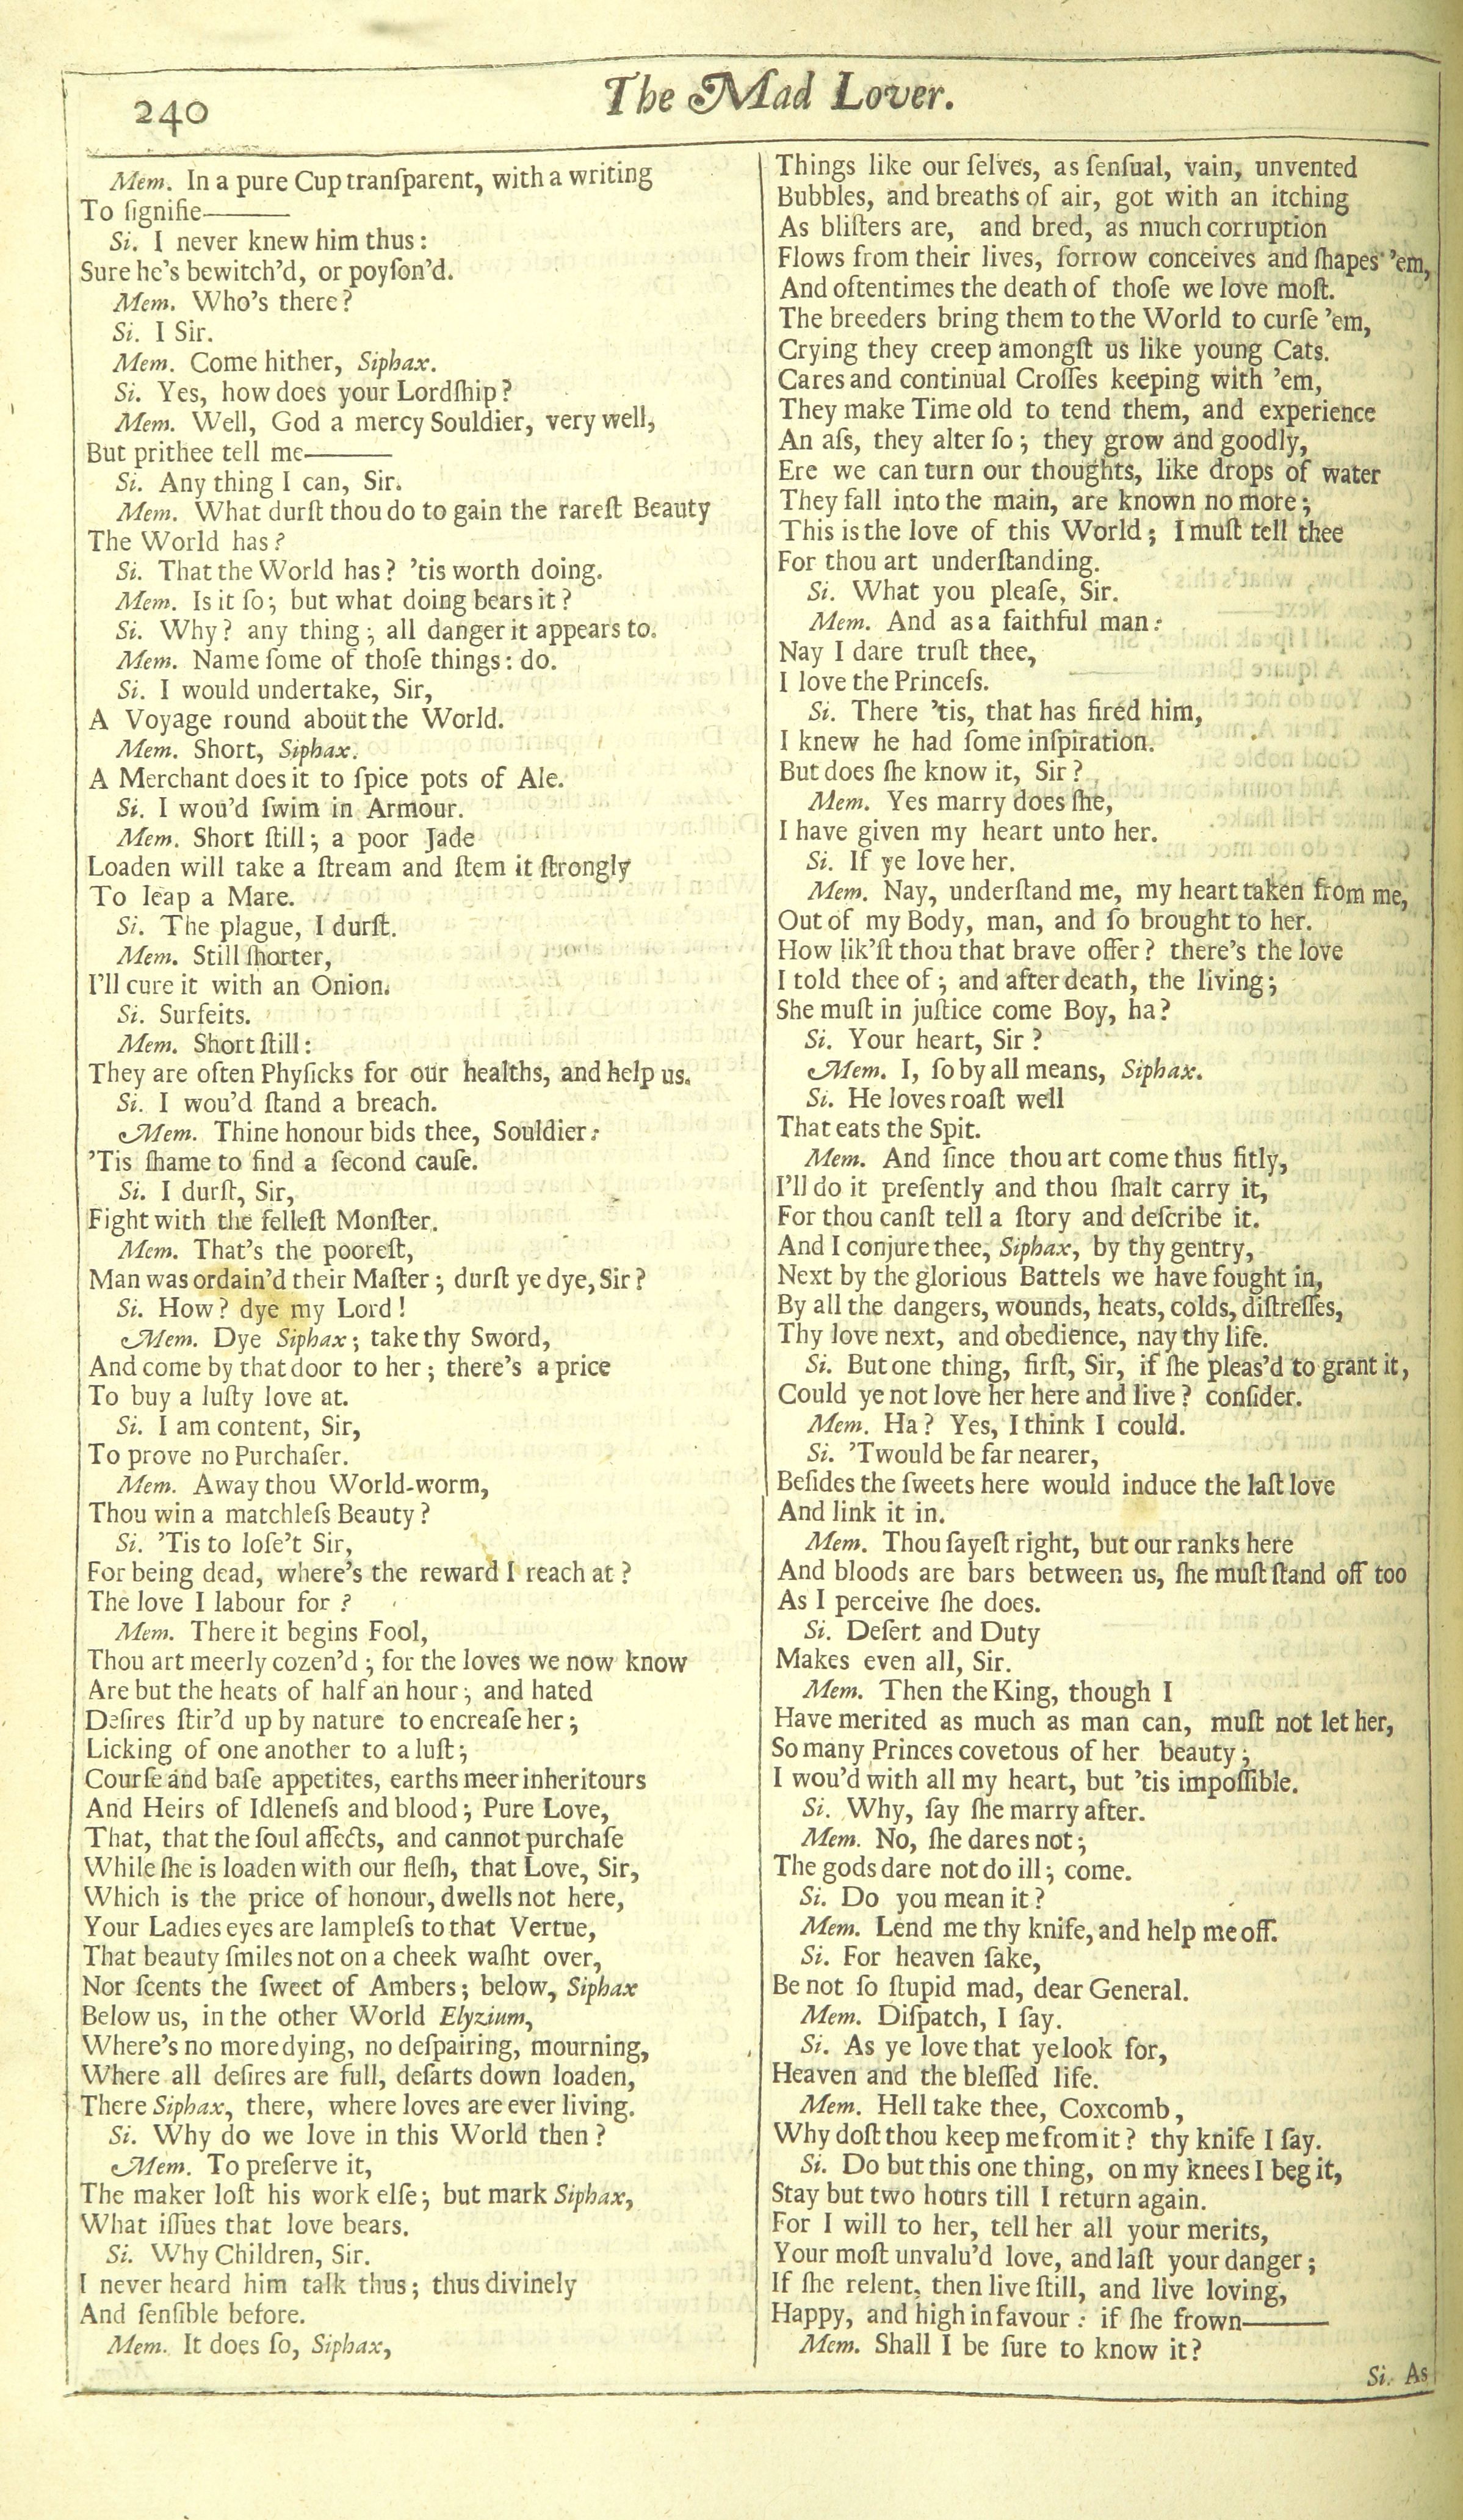 240
The Mad Lover.
Mem. In a pure Cup tranſparent, with a writing
To ſignifie———
Si. I never knew him thus:
Sure he's bewitch'd, or poyſon'd.
Mem. Who's there?
Si. I Sir.
Mem. Come hither, Siphax.
Si. Yes, how does your Lordſhip?
Mem. Well, God a mercy Souldier, very well,
But prithee tell me———
Si. Any thing I can, Sir.
Mem. What durſt thou do to gain the rareſt Beauty
The World has?
Si. That the World has? 'tis worth doing.
Mem. Is it ſo; but what doing bears it?
Si. Why? any thing; all danger it appears to.
Mem. Name ſome of thoſe things: do.
Si. I would undertake, Sir,
A Voyage round about the World.
Mem. Short, Siphax.
A Merchant does it to ſpice pots of Ale.
Si. I wou'd ſwim in Armour.
Mem. Short ſtill; a poor Jade
Loaden will take a ſtream and ſtem it ſtrongly
To leap a Mare.
Si. The plague, I durſt.
Mem. Still ſhorter,
I'll cure it with an Onion.
Si. Surfeits.
Mem. Short ſtill:
They are often Phyſicks for our healths, and help us.
Si. I wou'd ſtand a breach.
Mem. Thine honour bids thee, Souldier:
'Tis ſhame to find a ſecond cauſe.
Si. I durſt, Sir,
Fight with the felleſt Monſter.
Mem. That's the pooreſt,
Man was ordain'd their Maſter; durſt ye dye, Sir?
Si. How? dye my Lord!
Mem. Dye Siphax; take thy Sword,
And come by that door to her; there's a price
To buy a luſty love at.
Si. I am content, Sir,
To prove no Purchaſer.
Mem. Away thou World-worm,
Thou win a matchleſs Beauty?
Si. 'Tis to loſe't Sir,
For being dead, where's the reward I reach at?
The love I labour for?
Mem. There it begins Fool,
Thou art meerly cozen'd; for the loves we now know
Are but the heats of half an hour; and hated
Deſires ſtir'd up by nature to encreaſe her;
Licking of one another to a luſt;
Courſe and baſe appetites, earths meer inheritours
And Heirs of Idleneſs and blood; Pure Love,
That, that the ſoul affects, and cannot purchaſe
While ſhe is loaden with our fleſh, that Love, Sir,
Which is the price of honour, dwells not here,
Your Ladies eyes are lampleſs to that Vertue,
That beauty ſmiles not on a cheek waſht over,
Nor ſcents the ſweet of Ambers; below, Siphax
Below us, in the other World Elyzium,
Where's no more dying, no deſpairing, mourning,
Where all deſires are full, deſarts down loaden,
There Siphax, there, where loves are ever living.
Si. Why do we love in this World then?
Mem. To preſerve it,
The maker loſt his work elſe; but mark Siphax,
What iſſues that love bears.
Si. Why Children, Sir.
I never heard him talk thus; thus divinely
And ſenſible before.
Mem. It does ſo, Siphax,
Things like our ſelves, as ſenſual, vain, unvented
Bubbles, and breaths of air, got with an itching
As bliſters are, and bred, as much corruption
Flows from their lives, ſorrow conceives and ſhapes 'em,
And oftentimes the death of thoſe we love moſt.
The breeders bring them to the World to curſe 'em,
Crying they creep amongſt us like young Cats.
Cares and continual Croſſes keeping with 'em,
They make Time old to tend them, and experience
An aſs, they alter ſo; they grow and goodly,
Ere we can turn our thoughts, like drops of water
They fall into the main, are known no more;
This is the love of this World; I muſt tell thee
For thou art underſtanding.
Si. What you pleaſe, Sir.
Mem. And as a faithful man:
Nay I dare truſt thee,
I love the Princeſs.
Si. There 'tis, that has fired him,
I knew he had ſome inſpiration.
But does ſhe know it, Sir?
Mem. Yes marry does ſhe,
I have given my heart unto her.
Si. If ye love her.
Mem. Nay, underſtand me, my heart taken from me,
Out of my Body, man, and ſo brought to her.
How lik'ſt thou that brave offer? there's the love
I told thee of; and after death, the living;
She muſt in juſtice come Boy, ha?
Si. Your heart, Sir?
Mem. I, ſo by all means, Siphax.
Si. He loves roaſt well
That eats the Spit.
Mem. And ſince thou art come thus fitly,
I'll do it preſently and thou ſhalt carry it,
For thou canſt tell a ſtory and deſcribe it.
And I conjure thee, Siphax, by thy gentry,
Next by the glorious Battels we have fought in,
By all the dangers, wounds, heats, colds, diſtreſſes,
Thy love next, and obedience, nay thy life.
Si. But one thing, firſt, Sir, if ſhe pleas'd to grant it,
Could ye not love her here and live? conſider.
Mem. Ha? Yes, I think I could.
Si. 'Twould be far nearer,
Beſides the ſweets here would induce the laſt love
And link it in.
Mem. Thou ſayeſt right, but our ranks here
And bloods are bars between us, ſhe muſt ſtand off too
As I perceive ſhe does.
Si. Deſert and Duty
Makes even all, Sir.
Mem. Then the King, though I
Have merited as much as man can, muſt not let her,
So many Princes covetous of her beauty;
I wou'd with all my heart, but 'tis impoſſible.
Si. Why, ſay ſhe marry after.
Mem. No, ſhe dares not;
The gods dare not do ill; come.
Si. Do you mean it?
Mem. Lend me thy knife, and help me off.
Si. For heaven ſake,
Be not ſo ſtupid mad, dear General.
Mem. Diſpatch, I ſay.
Si. As ye love that ye look for,
Heaven and the bleſſed life.
Mem. Hell take thee, Coxcomb,
Why doſt thou keep me from it? thy knife I ſay.
Si. Do but this one thing, on my knees I beg it,
Stay but two hours till I return again.
For I will to her, tell her all your merits,
Your moſt unvalu'd love, and laſt your danger;
If ſhe relent, then live ſtill, and live loving,
Happy, and high in favour: if ſhe frown———
Mem. Shall I be ſure to know it?
Si. As